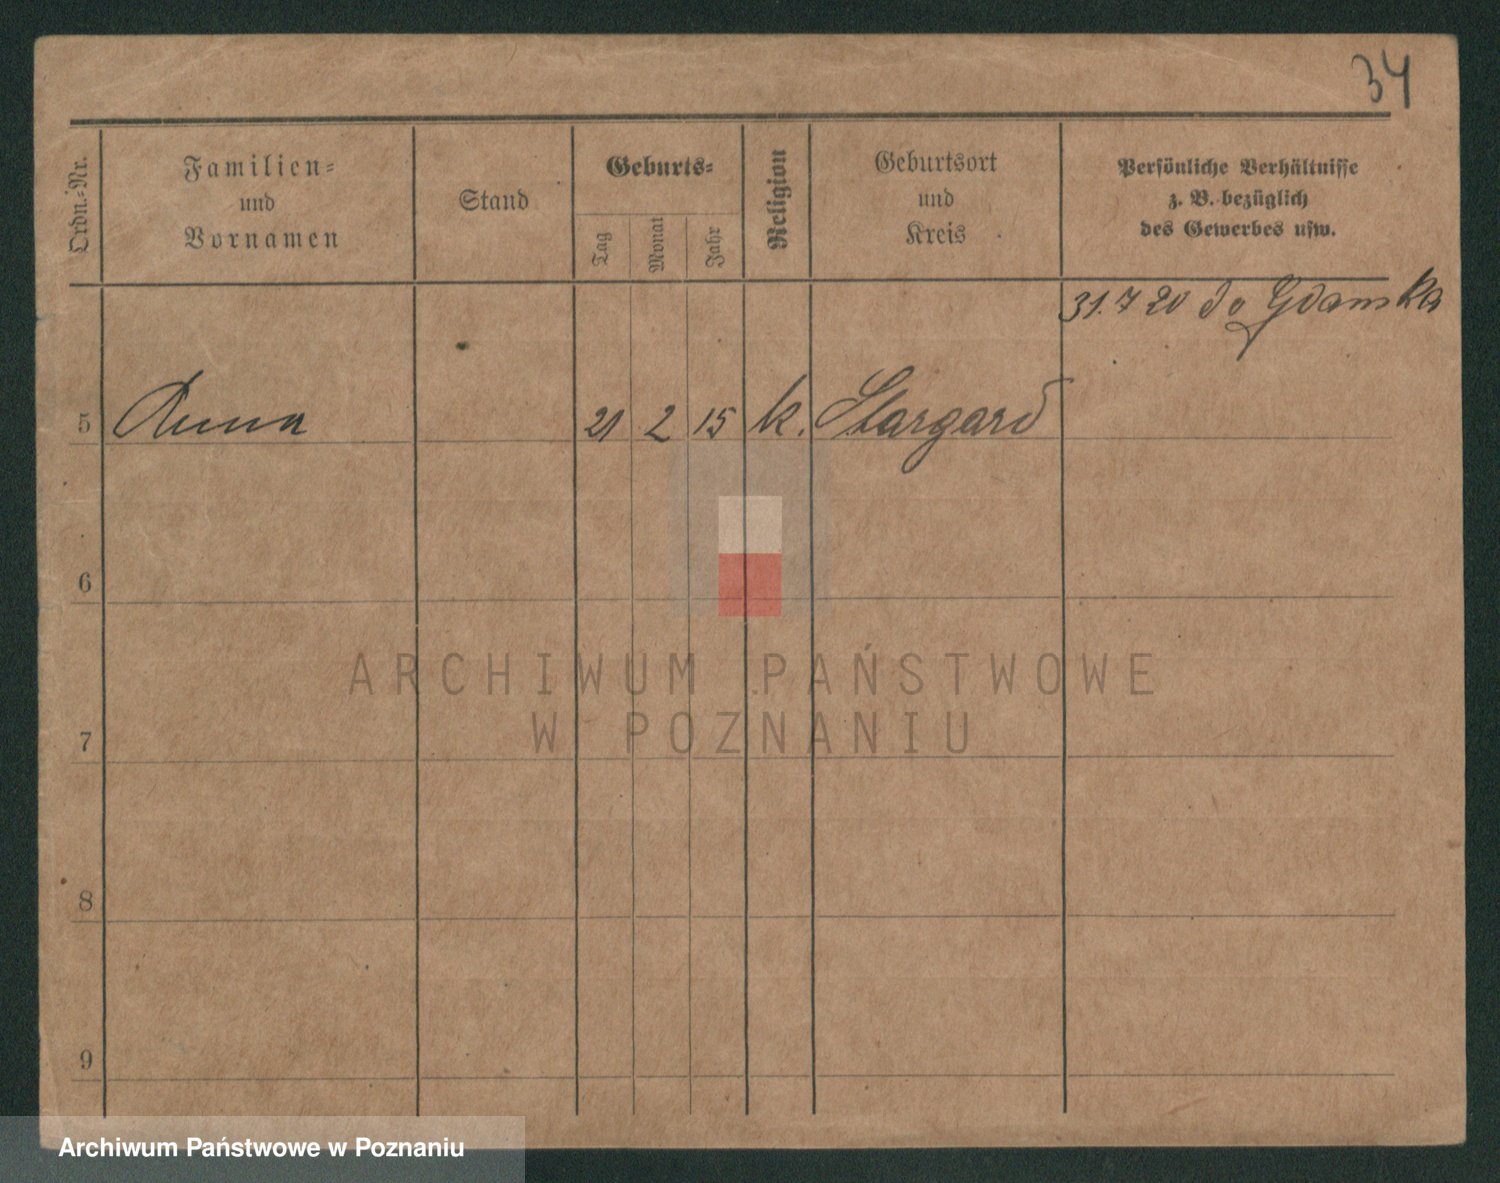 34
Ordn.-Nr.
Familien-
und
Vornamen
Stand
Geburts-
Tag
Monat
Jahr
Religion
Geburtsort
und
Kreis
Persönliche Verhältnisse
z. B. bezüglich
des Gewerbes usw.
31.7 20 do Gdanska
5 Anna 21 2 15 k. Stargard
6
7
8
9
ARCHIWUM PAŃSTWOWE
W POZNANIU
Archiwum Państwowe w Poznaniu